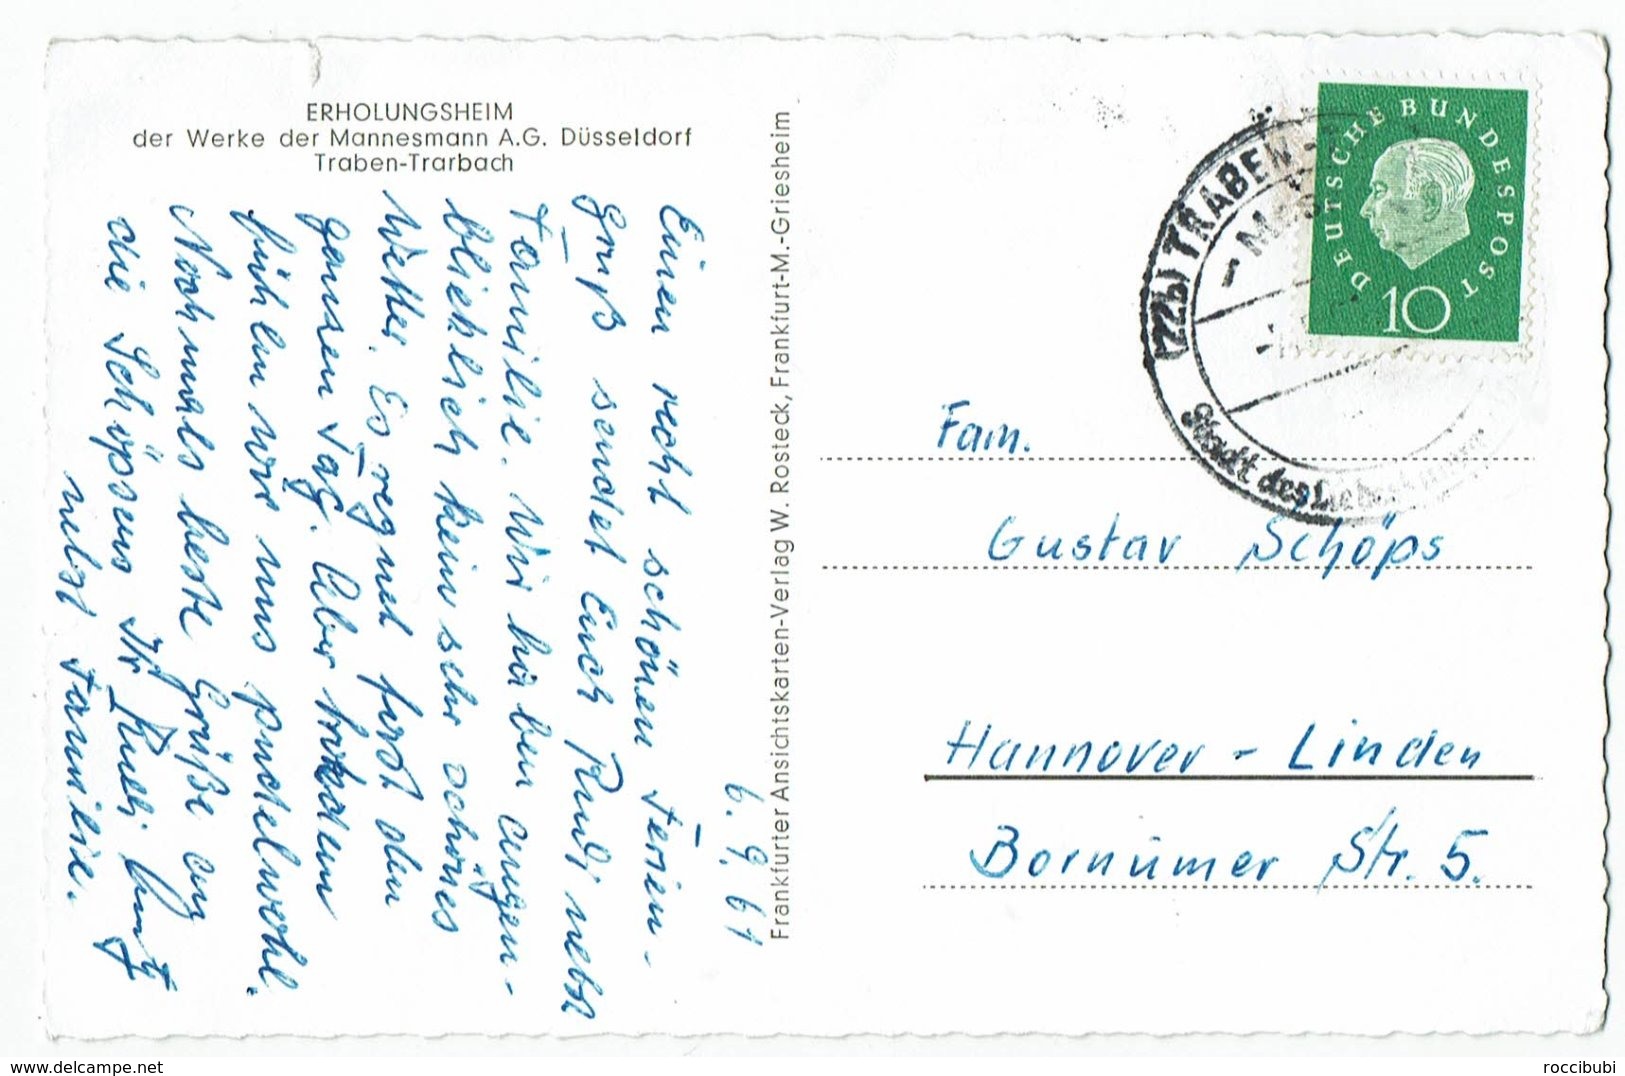 ERHOLUNGSHEIM
der Werke der Mannesmann A.G. Düsseldorf
Traben-Trarbach
6.9.61
Einen recht schönen Ferien-
gruß sendet Euch Rudi nebst
Familie. Wir haben augen-
blicklich kein sehr schönes
Wetter. Es regnet fast den
ganzen Tag. Aber trotzdem
fühlen wir uns pudelwohl.
Nochmals beste Grüße an
die Schöpsens Ihr Rudi
nebst Familie.
Frankfurter Ansichtskarten-Verlag W. Rosteck, Frankfurt-M.-Griesheim
DEUTSCHE BUNDESPOST
10
(22b) TRABEN-
Stadt des
Fam.
Gustav Schöps
Hannover - Linden
Bornumer Str. 5.
www.delcampe.net
roccibubi